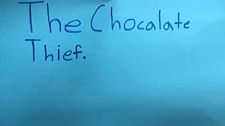 The Chocalate
Thief.